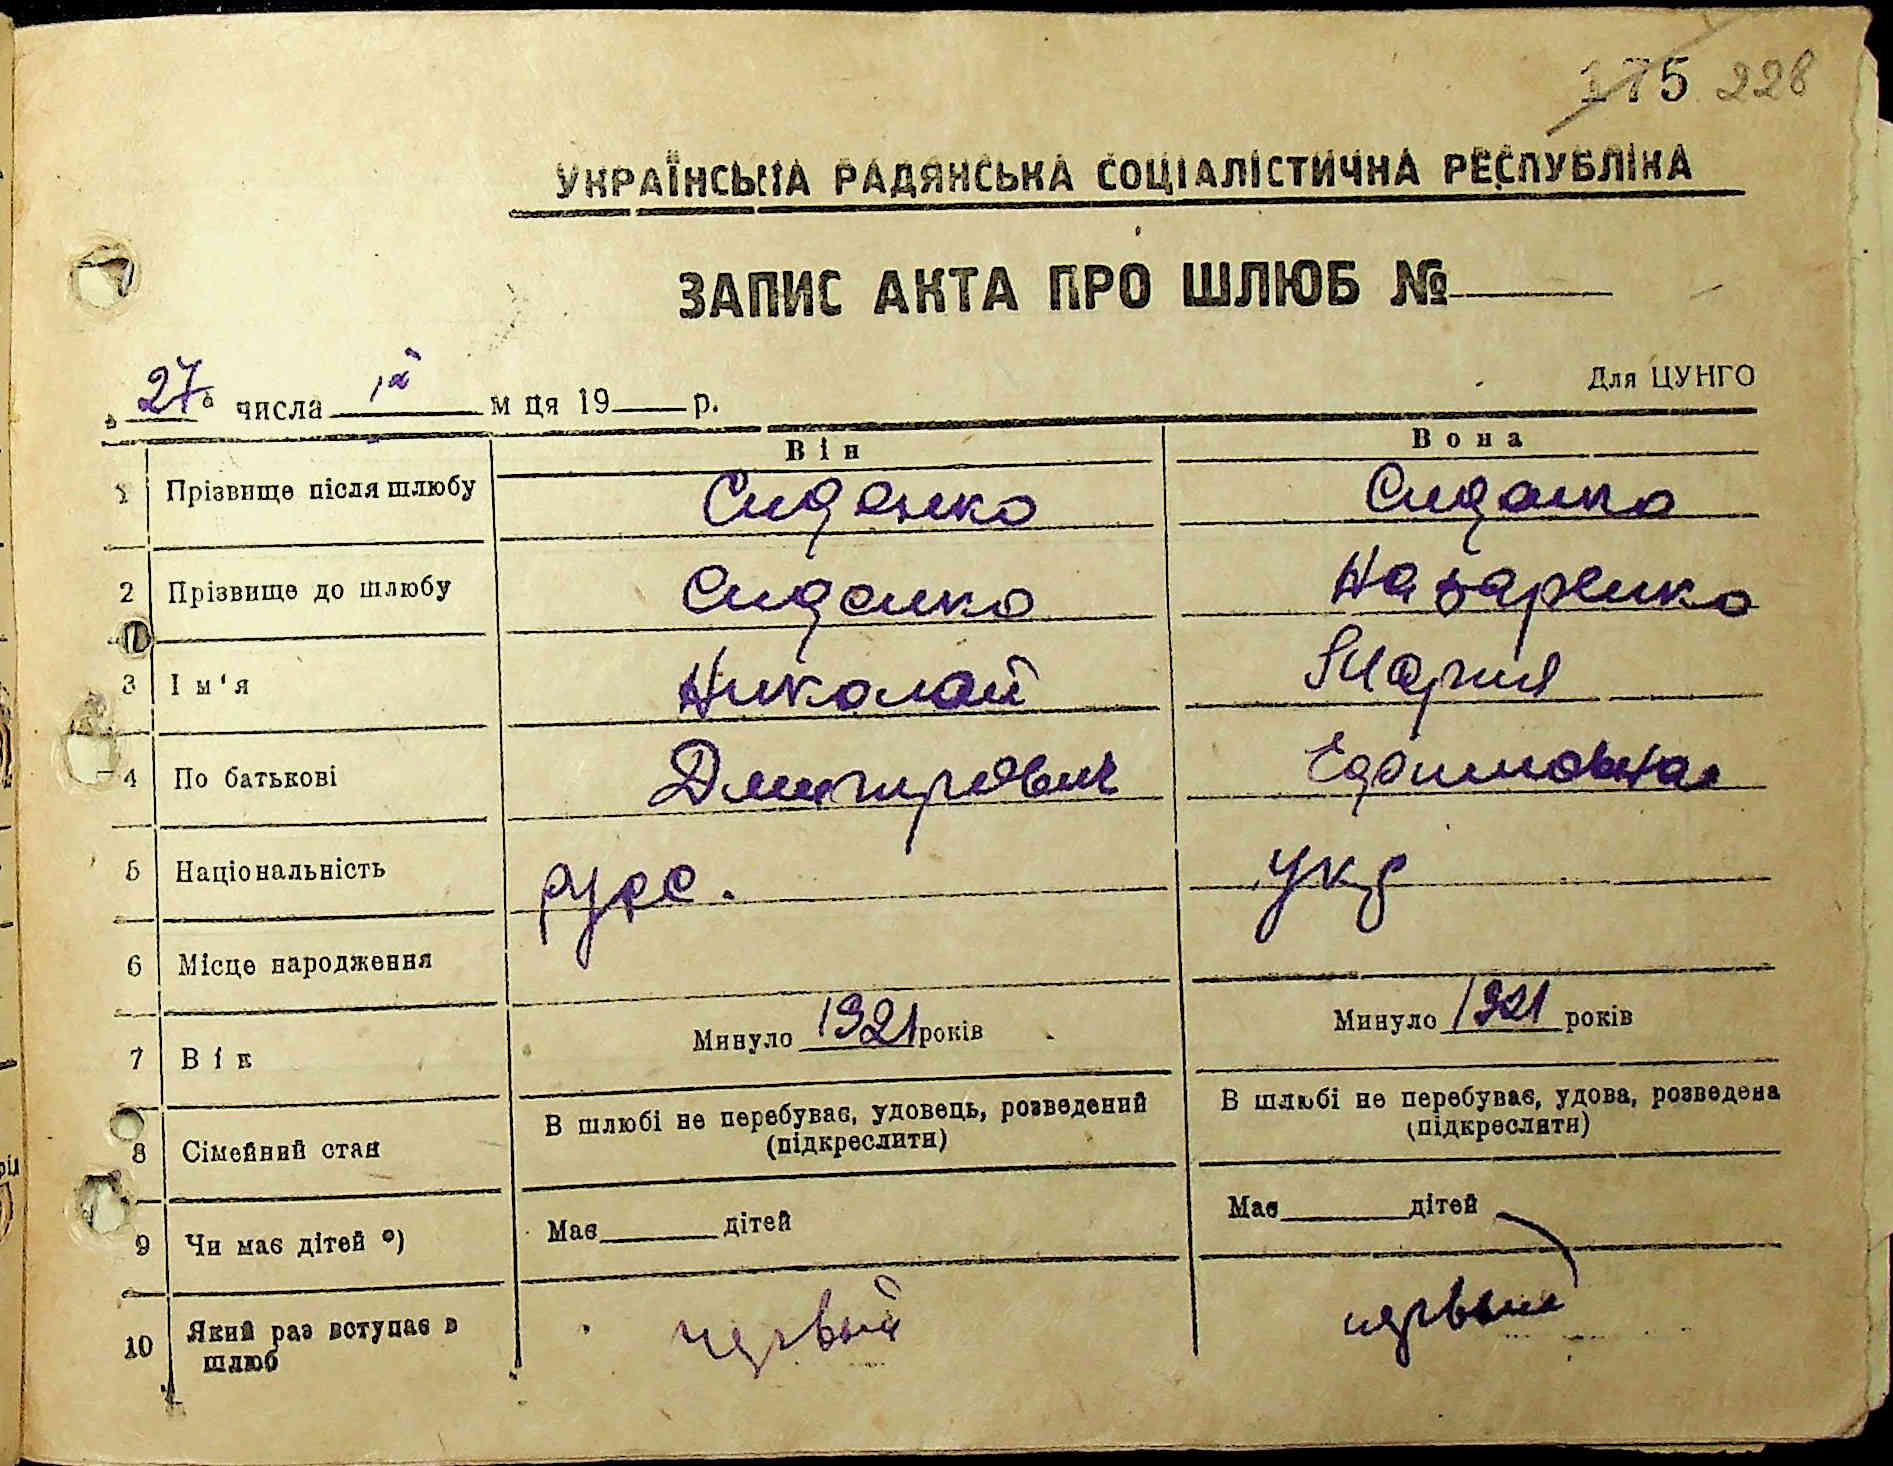 175 228
УКРАЇНСЬКА РАДЯНСЬКА СОЦІАЛІСТИЧНА РЕСПУБЛІКА
ЗАПИС АКТА ПРО ШЛЮБ №
Для ЦУНГО
„ 27 “ числа м ця 19 р.
Він Вона
1 Прізвище після шлюбу Сиденко Сиденко
2 Прізвище до шлюбу Сиденко Назаренко
3 Ім'я Николай Мария
4 По батькові Дмитрович
5 Національність русс. укр
6 Місце народження
7 Вік Минуло 1921 років Минуло 1921 років
8 Сімейний стан В шлюбі не перебуває, удовець, розведений (підкреслити) В шлюбі не перебуває, удова, розведена (підкреслити)
9 Чи має дітей *) Має дітей Має дітей
10 Який раз вступає в шлюб первый первый